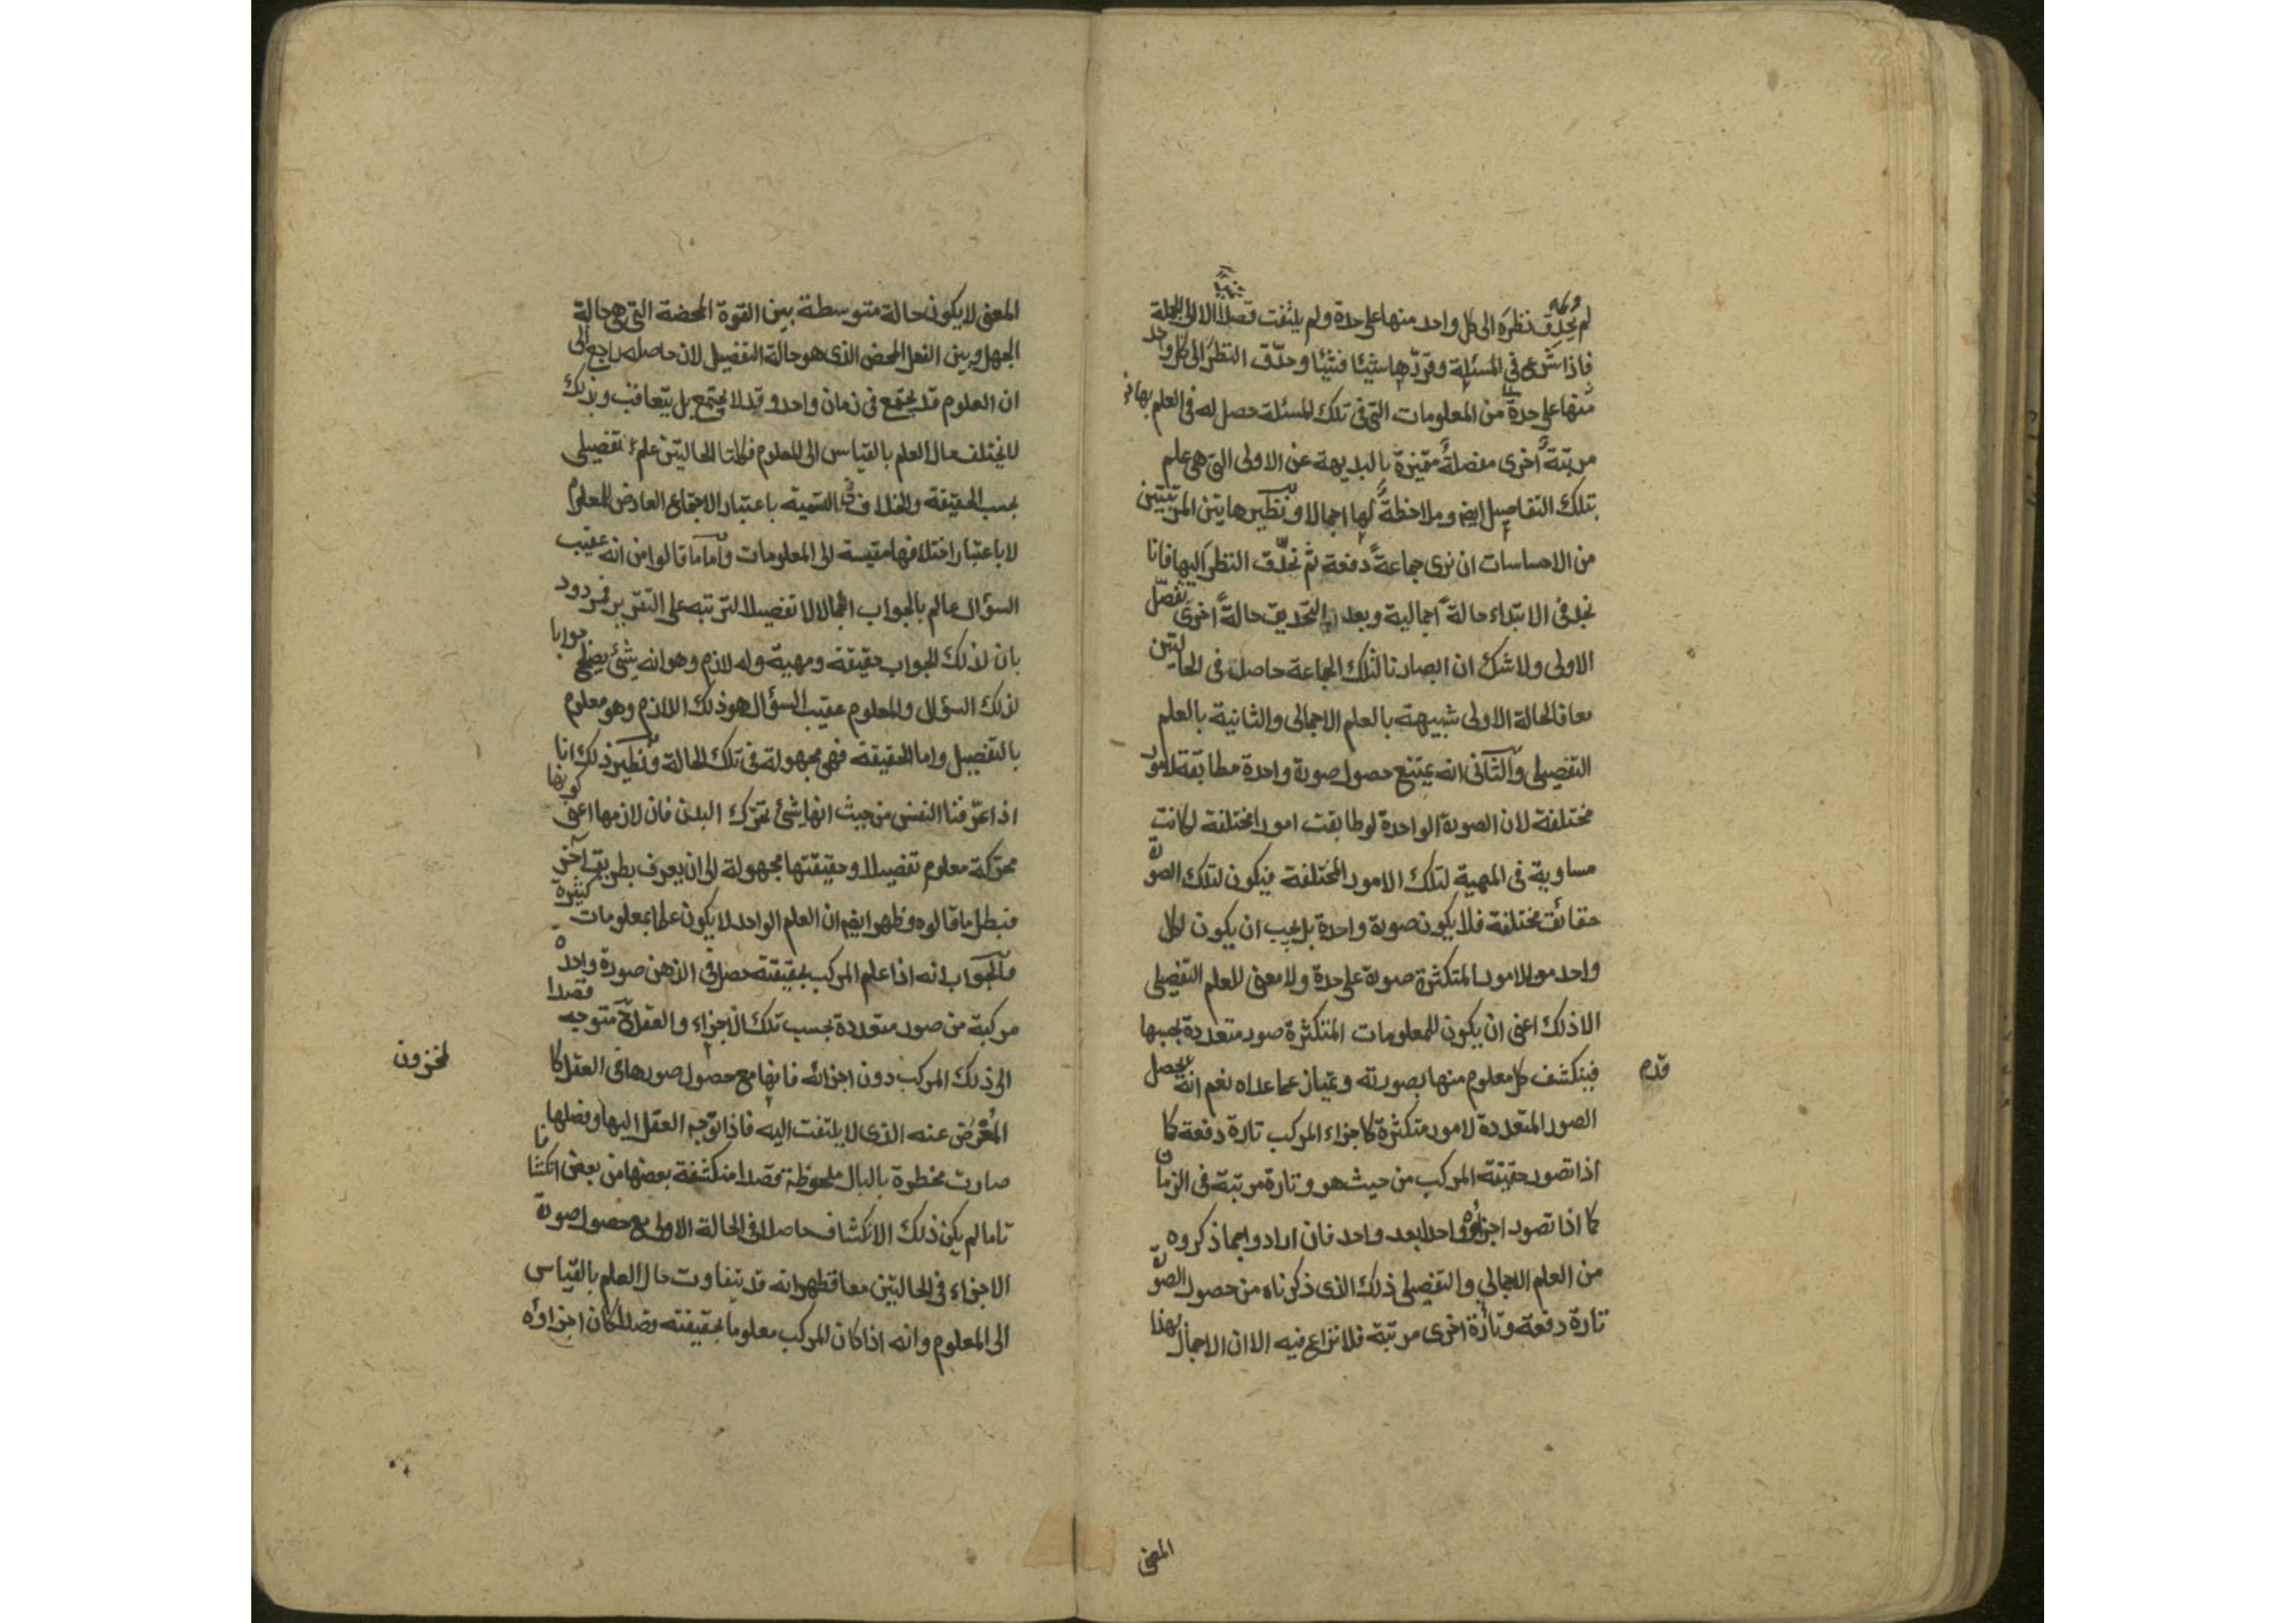 لم يحدق نظره الى كل واحد منها على حدة ولم يلتفت قصدا الا الى الجملة
فاذا شرع في المسئلة وقررها شيئا فشيئا وحدّق النظر الى كل واحد
منها على حدة من المعلومات التى فى تلك المسئلة حصل له فى العلم بها
مرتبةٌ اخرى مفصلةٌ متميزة بالبديهة عن الاولى التى هى علم
بتلك التفاصيل ايضا وملاحظةٌ لها اجمالا ونظير هاتين المرتبتين
من الاحساسات ان نرى جماعةً دفعة ثم نحدّق النظر اليها فانا
نجد فى الابتداء حالةً اجمالية وبعد التحديق حالةً اخرى تفصّل
الاولى ولا شك ان ابصارنا لتلك الجماعة حاصل فى الحالتين
معا فالحالة الاولى شبيهة بالعلم الاجمالى والثانية بالعلم
التفصيلى والثانى انه يمتنع حصول صورة واحدة مطابقة لامور
مختلفة لان الصورة الواحدة لو طابقت امورا مختلفة لكانت
مساوية فى المهية لتلك الامور المختلفة فيكون لتلك الصورة
حقائق مختلفة فلا يكون صورة واحدة بل يجب ان يكون لكل
واحد من الامور المتكثرة صورة على حدة ولا معنى للعلم التفصيلى
الا ذلك اعنى ان يكون للمعلومات المتكثرة صور متعددة بحسبها
فينكشف كل معلوم منها بصورته ويمتاز عما عداه نعم انه يحصل
قدم
الصور المتعددة لامور متكثرة كاجزاء المركب تارة دفعة كما
اذا تصور حقيقة المركب من حيث هو وتارة مرتبة فى الزمان
كما اذا تصور اجزاؤه واحدا بعد واحد فان ارادوا بما ذكروه
من العلم الاجمالي والتفصيلى ذلك الذى ذكرناه من حصول الصورة
تارة دفعة وتارة اخرى مرتبة فلا نزاع فيه الا ان الاجمال بهذا
المعنى
المعنى لا يكون حالة متوسطة بين القوة المحضة التى هى حالة
الجهل وبين الفعل المحض الذى هو حالة التفصيل لان حاصله راجع الى
ان العلوم قد يجتمع فى زمان واحد وقد لا يجتمع بل يتعاقب وبذلك
لا يختلف حال العلم بالقياس الى المعلوم فكلتا الحالتين علم تفصيلى
بحسب الحقيقة والخلاف فى التسمية باعتبار الاجتماع العارض للعلوم
لا باعتبار اختلافها مقيسة الى المعلومات واما ما قالوا من انه عقيب
السؤال عالم بالجواب اجمالا لا تفصيلا لترتبه على التقرير فمردود
بان لذلك الجواب حقيقة ومهية وله لازم وهو انه شئ يصلح جوابا
لذلك السؤال والمعلوم عقيب السؤال هو ذلك اللازم وهو معلوم
بالتفصيل واما الحقيقة فهى مجهولة فى تلك الحالة ونظير ذلك انا
اذا عرّفنا النفس من حيث انها شئ تحرّك البدن فان لازمها اعنى كونها
محركة معلوم تفصيلا وحقيقتها مجهولة الى ان يعرف بطريق آخر
فبطل ما قالوه وظهر ايضا ان العلم الواحد لا يكون علما بمعلومات كثيرة
والجواب انه اذا علم المركب بحقيقته حصل فى الذهن صورة واحدة
مركبة من صور متعددة بحسب تلك الاجزاء والعقل ح متوجه قصدا
الى ذلك المركب دون اجزائه فانها مع حصول صورها فى العقل كا
لمخزون
المعرَض عنه الذى لا يلتفت اليه فاذا توجه العقل اليها وفصلها
صارت مخطرة بالبال ملحوظة قصدا منكشفة بعضها من بعض انكشافا
تاما لم يكن ذلك الانكشاف حاصلا فى الحالة الاولى مع حصول صورة
الاجزاء فى الحالتين معا فظهر انه قد يتفاوت حال العلم بالقياس
الى المعلوم وانه اذا كان المركب معلوما بحقيقته قصدا كان اجزاؤه